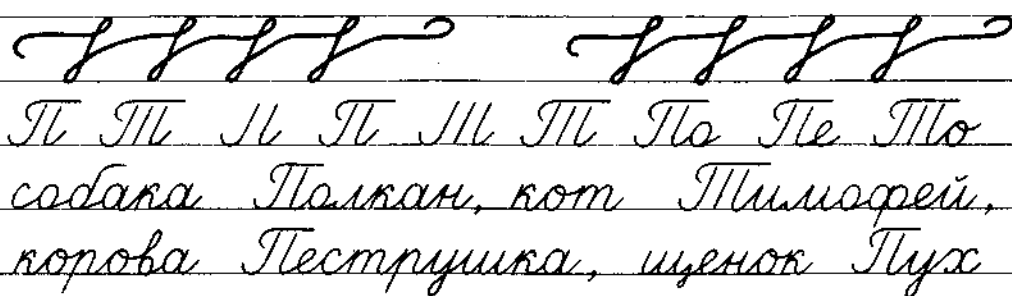 П Т П П Т Т По Пе То
собака Полкан, кот Тимофей,
корова Пеструшка, щенок Пух